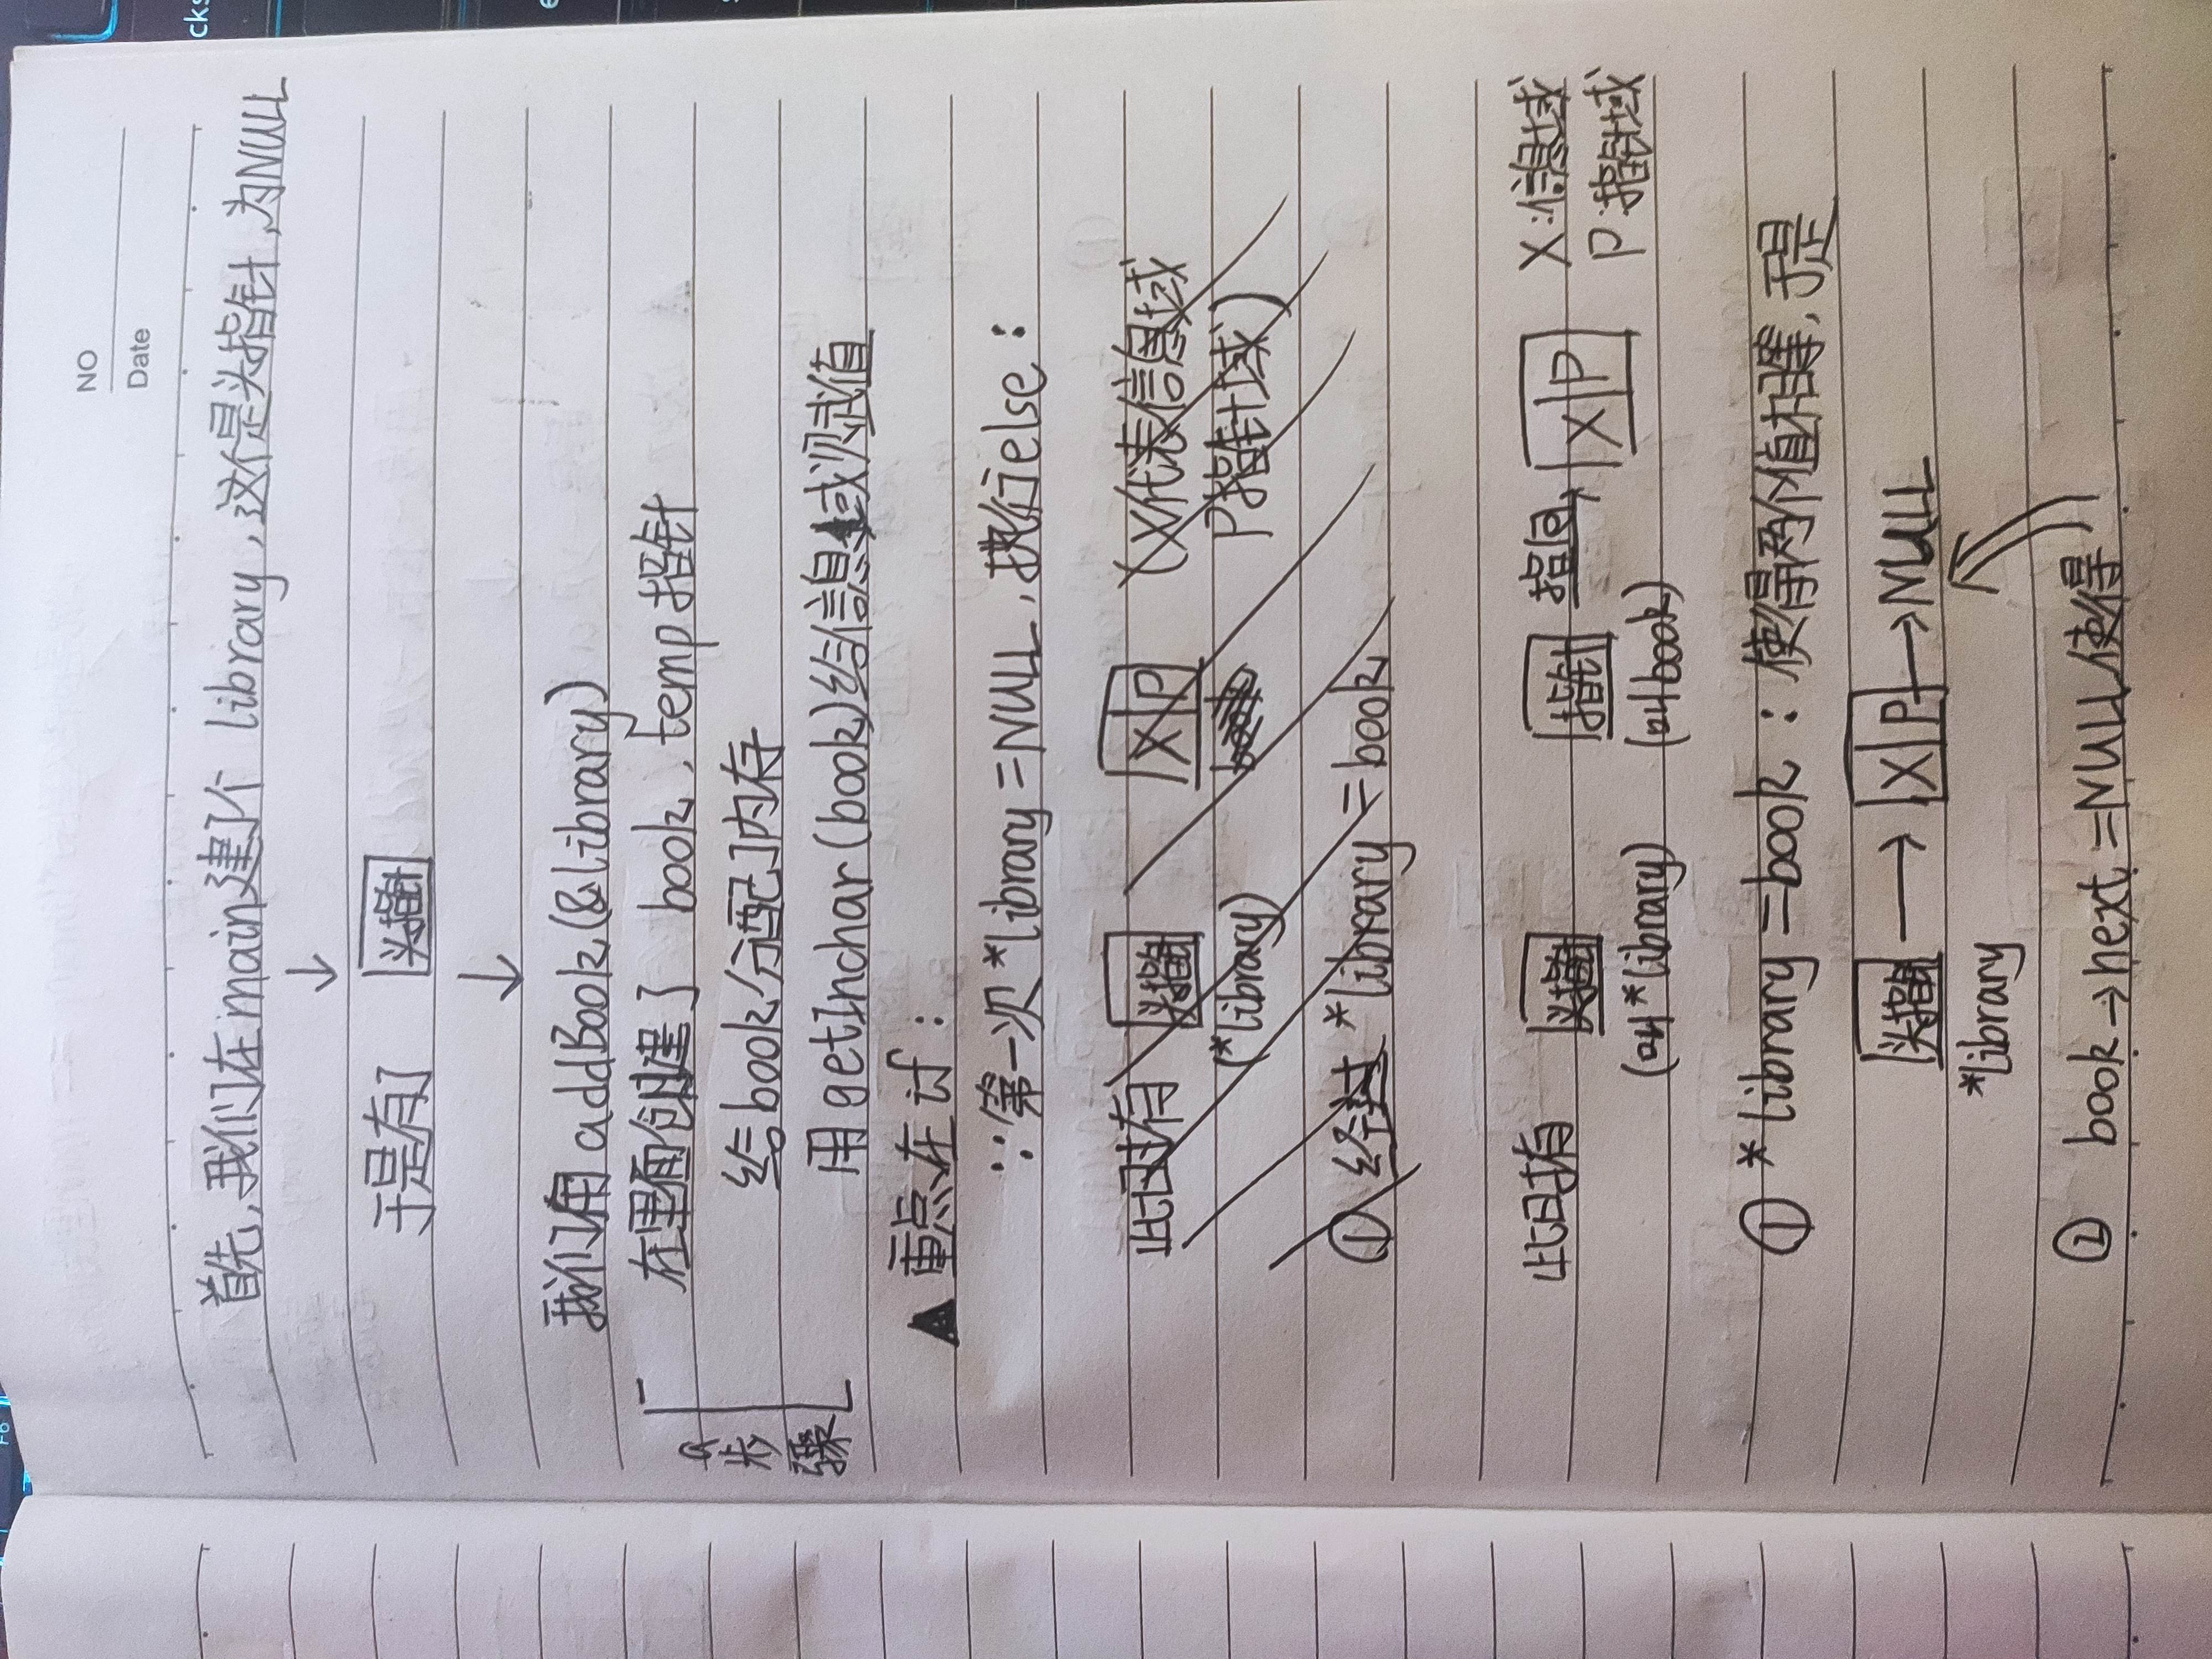 F6
NO
Date
cks
首先,我们在main建了个 library,这个是头指针,为NULL
↓
于是有了 头指针
↓
我们用 addBook(&library)
在里面创建了 book,temp指针
a步骤
给book分配了内存
用getInchar(book)给信息域赋值
▲重点在if:
∵第一次*library=NULL,执行else:
此时有 头指针 X P (X代表信息域
(*library) book P指针域)
① 经过 *library=book
此时有 头指针 指针 指向→ X P X:信息域
(叫*library) (叫book) P:指针域
① *library=book:使得两个值相等,于是
头指针 → X P →NULL
*library
② book→next=NULL使得